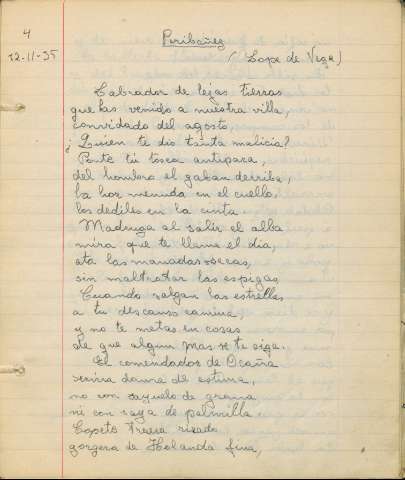 4
12-11-35
Peribáñez
(Lope de Vega)
Labrador de lejas tierras
que has venido a nuestra villa,
convidado del agosto,
¿Quien te dio tanta malicia?
Ponte tu tosca antipara,
del hombro el gaban derriba,
la hoz menuda en el cuello,
los dediles en la cinta.
Madruga al salir el alba
mira que te llama el dia,
ata las manadas secas,
sin maltratar las espigas.
Cuando salgan las estrellas
a tu descanso camina,
y no te metas en cosas
de que algun mas se te siga.
El comendador de Ocaña
servira dama de estima,
no con sayuelo de grana
ni con saya de palmilla
Copete traera rizado
gorgera de Holanda fina,